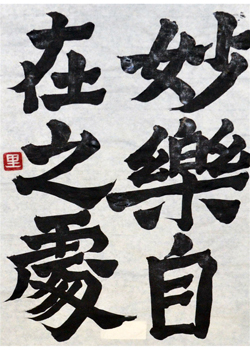 妙樂自
在之處
里